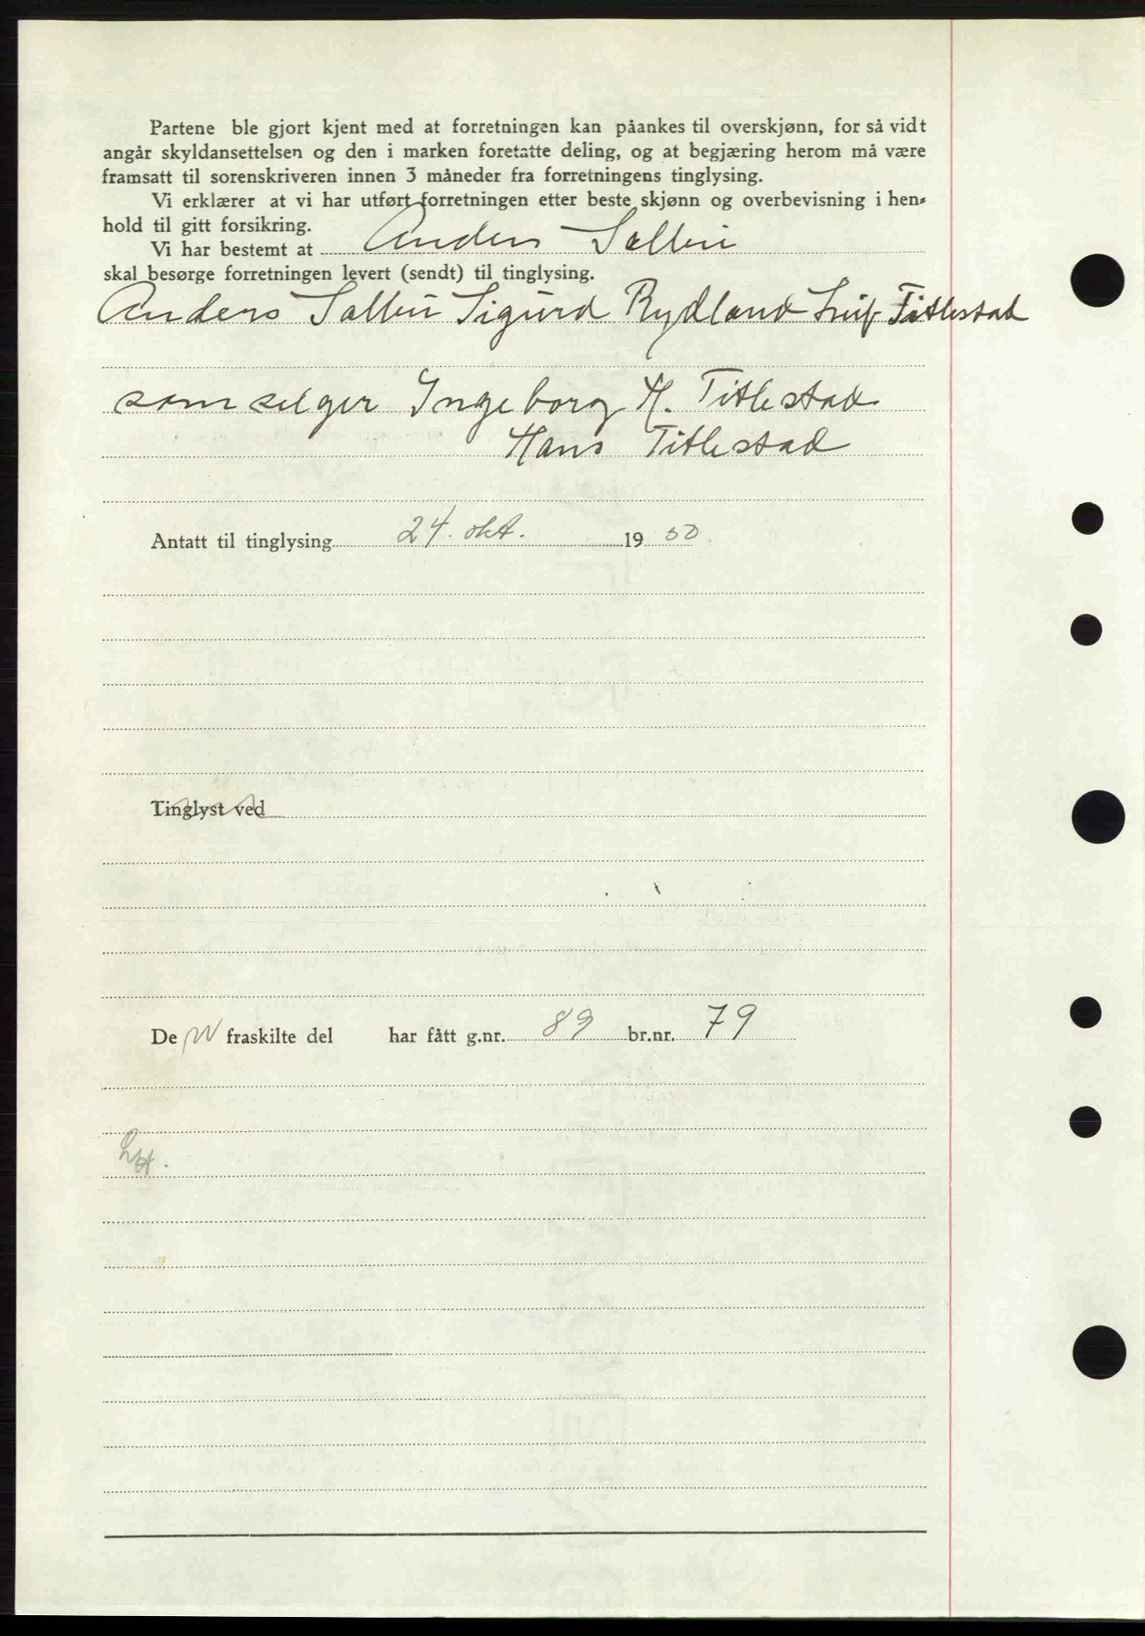 Partene ble gjort kjent med at forretningen kan påankes til overskjønn, for så vidt
angår skyldansettelsen og den i marken foretatte deling, og at begjæring herom må være
framsatt til sorenskriveren innen 3 måneder fra forretningens tinglysing.
Vi erklærer at vi har utført forretningen etter beste skjønn og overbevisning i hen-
hold til gitt forsikring.
Vi har bestemt at Anders Sælbu
skal besørge forretningen levert (sendt) til tinglysing.
Anders Sælbu Sigurd Rydland Leif Titlestad
som selger Ingeborg H. Titlestad
Hans Titlestad
Antatt til tinglysing 24. okt. 19 50
Tinglyst ved
De n fraskilte del har fått g.nr. 89 br.nr. 79